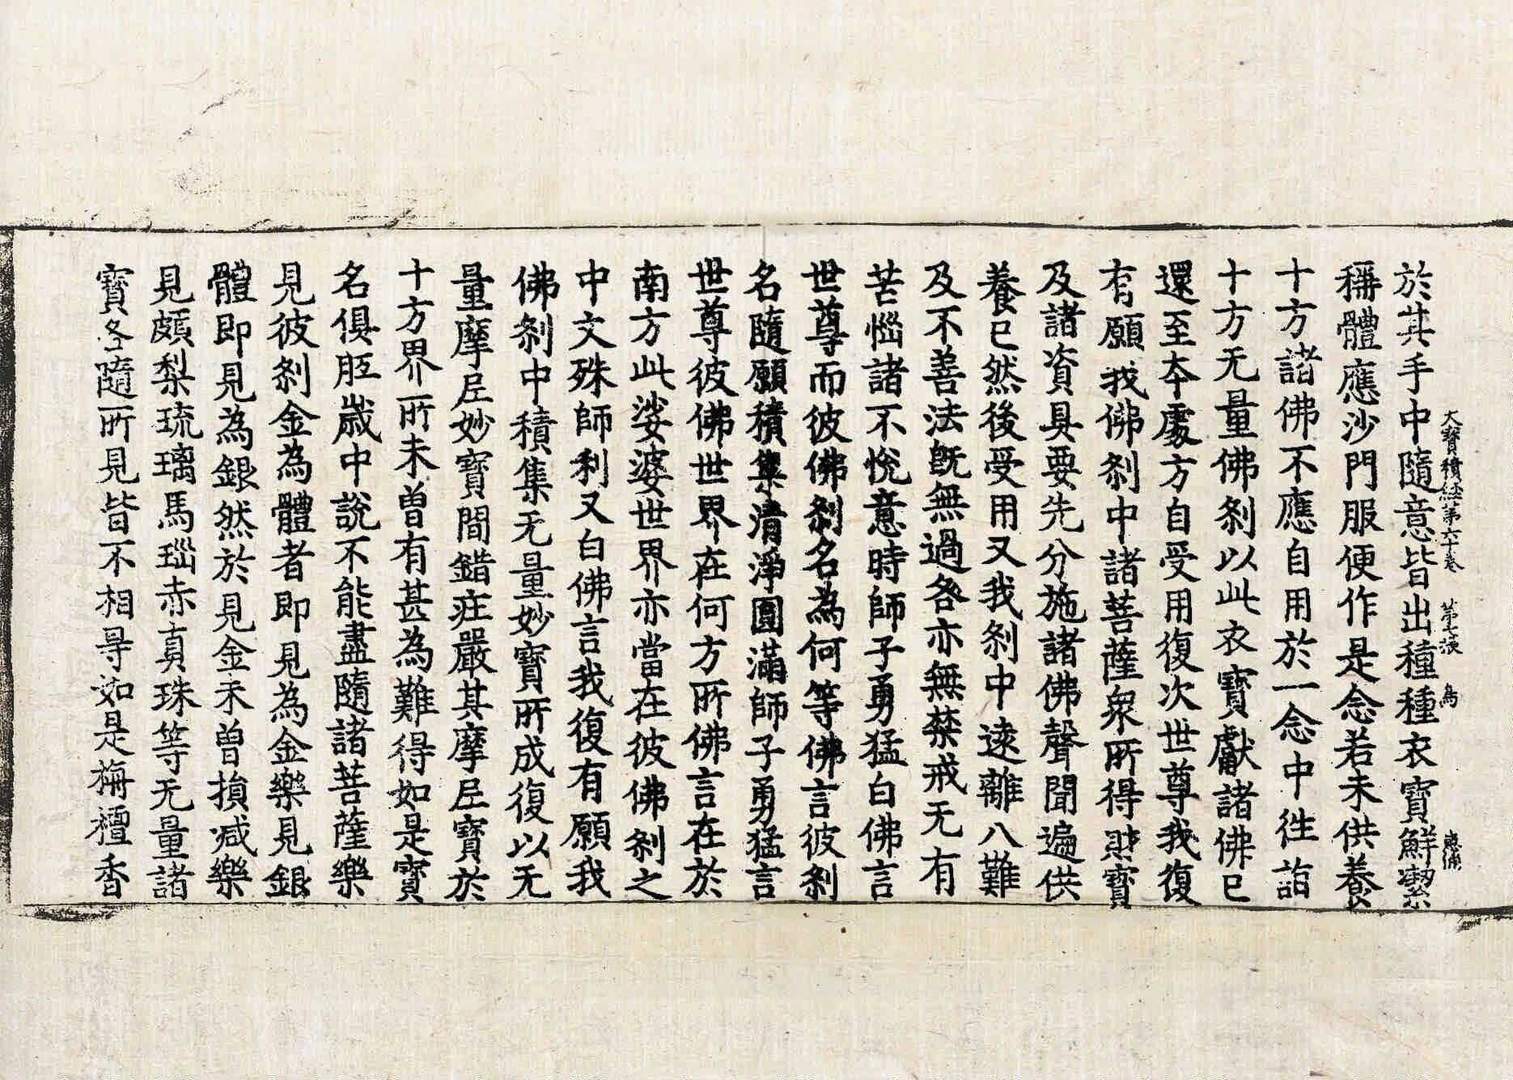 大寶積経第六十卷
於其手中隨意皆出種種衣寶鮮潔
稱體應沙門服便作是念若未供養
十方諸佛不應自用於一念中徃詣
十方无量佛刹以此衣寶獻諸佛已
還至本處方自受用復次世尊我復
有願我佛刹中諸菩薩衆所得財寶
及諸資具要先分施諸佛聲聞遍供
養已然後受用又我刹中遠離八難
及不善法旣無過咎亦無禁戒无有
苦惱諸不悅意時師子勇猛白佛言
世尊而彼佛刹名為何等佛言彼刹
名隨願積集清淨圓滿師子勇猛言
世尊彼佛世界在何方所佛言在於
南方此娑婆世界亦當在彼佛刹之
中文殊師利又白佛言我復有願我
佛刹中積集无量妙寶所成復以无
量摩尼妙寶間錯莊嚴其摩尼寶於
十方界所未曾有甚為難得如是寶
名俱胝歲中說不能盡隨諸菩薩樂
見彼刹金為體者即見為金樂見銀
體即見為銀然於見金未曾損減樂
見頗梨琉璃馬瑙赤真珠等无量諸
寶各隨所見皆不相㝵如是栴檀香